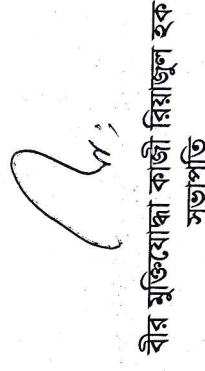 বীর মুক্তিযোদ্ধা কাজী রিয়াজুল হক
সভাপতি